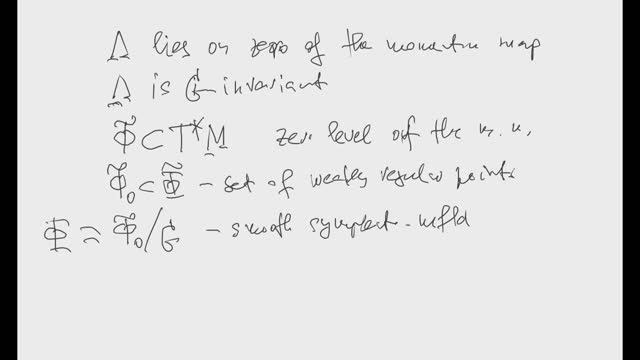 Λ lies on zero of the momentum map
Λ is G-invariant
Φ̃ ⊂ T*M zero level of the m. m.
Φ̃₀ ⊂ Φ̃ - set of weakly regular points
Φ = Φ̃₀/G - smooth symplect. mfld